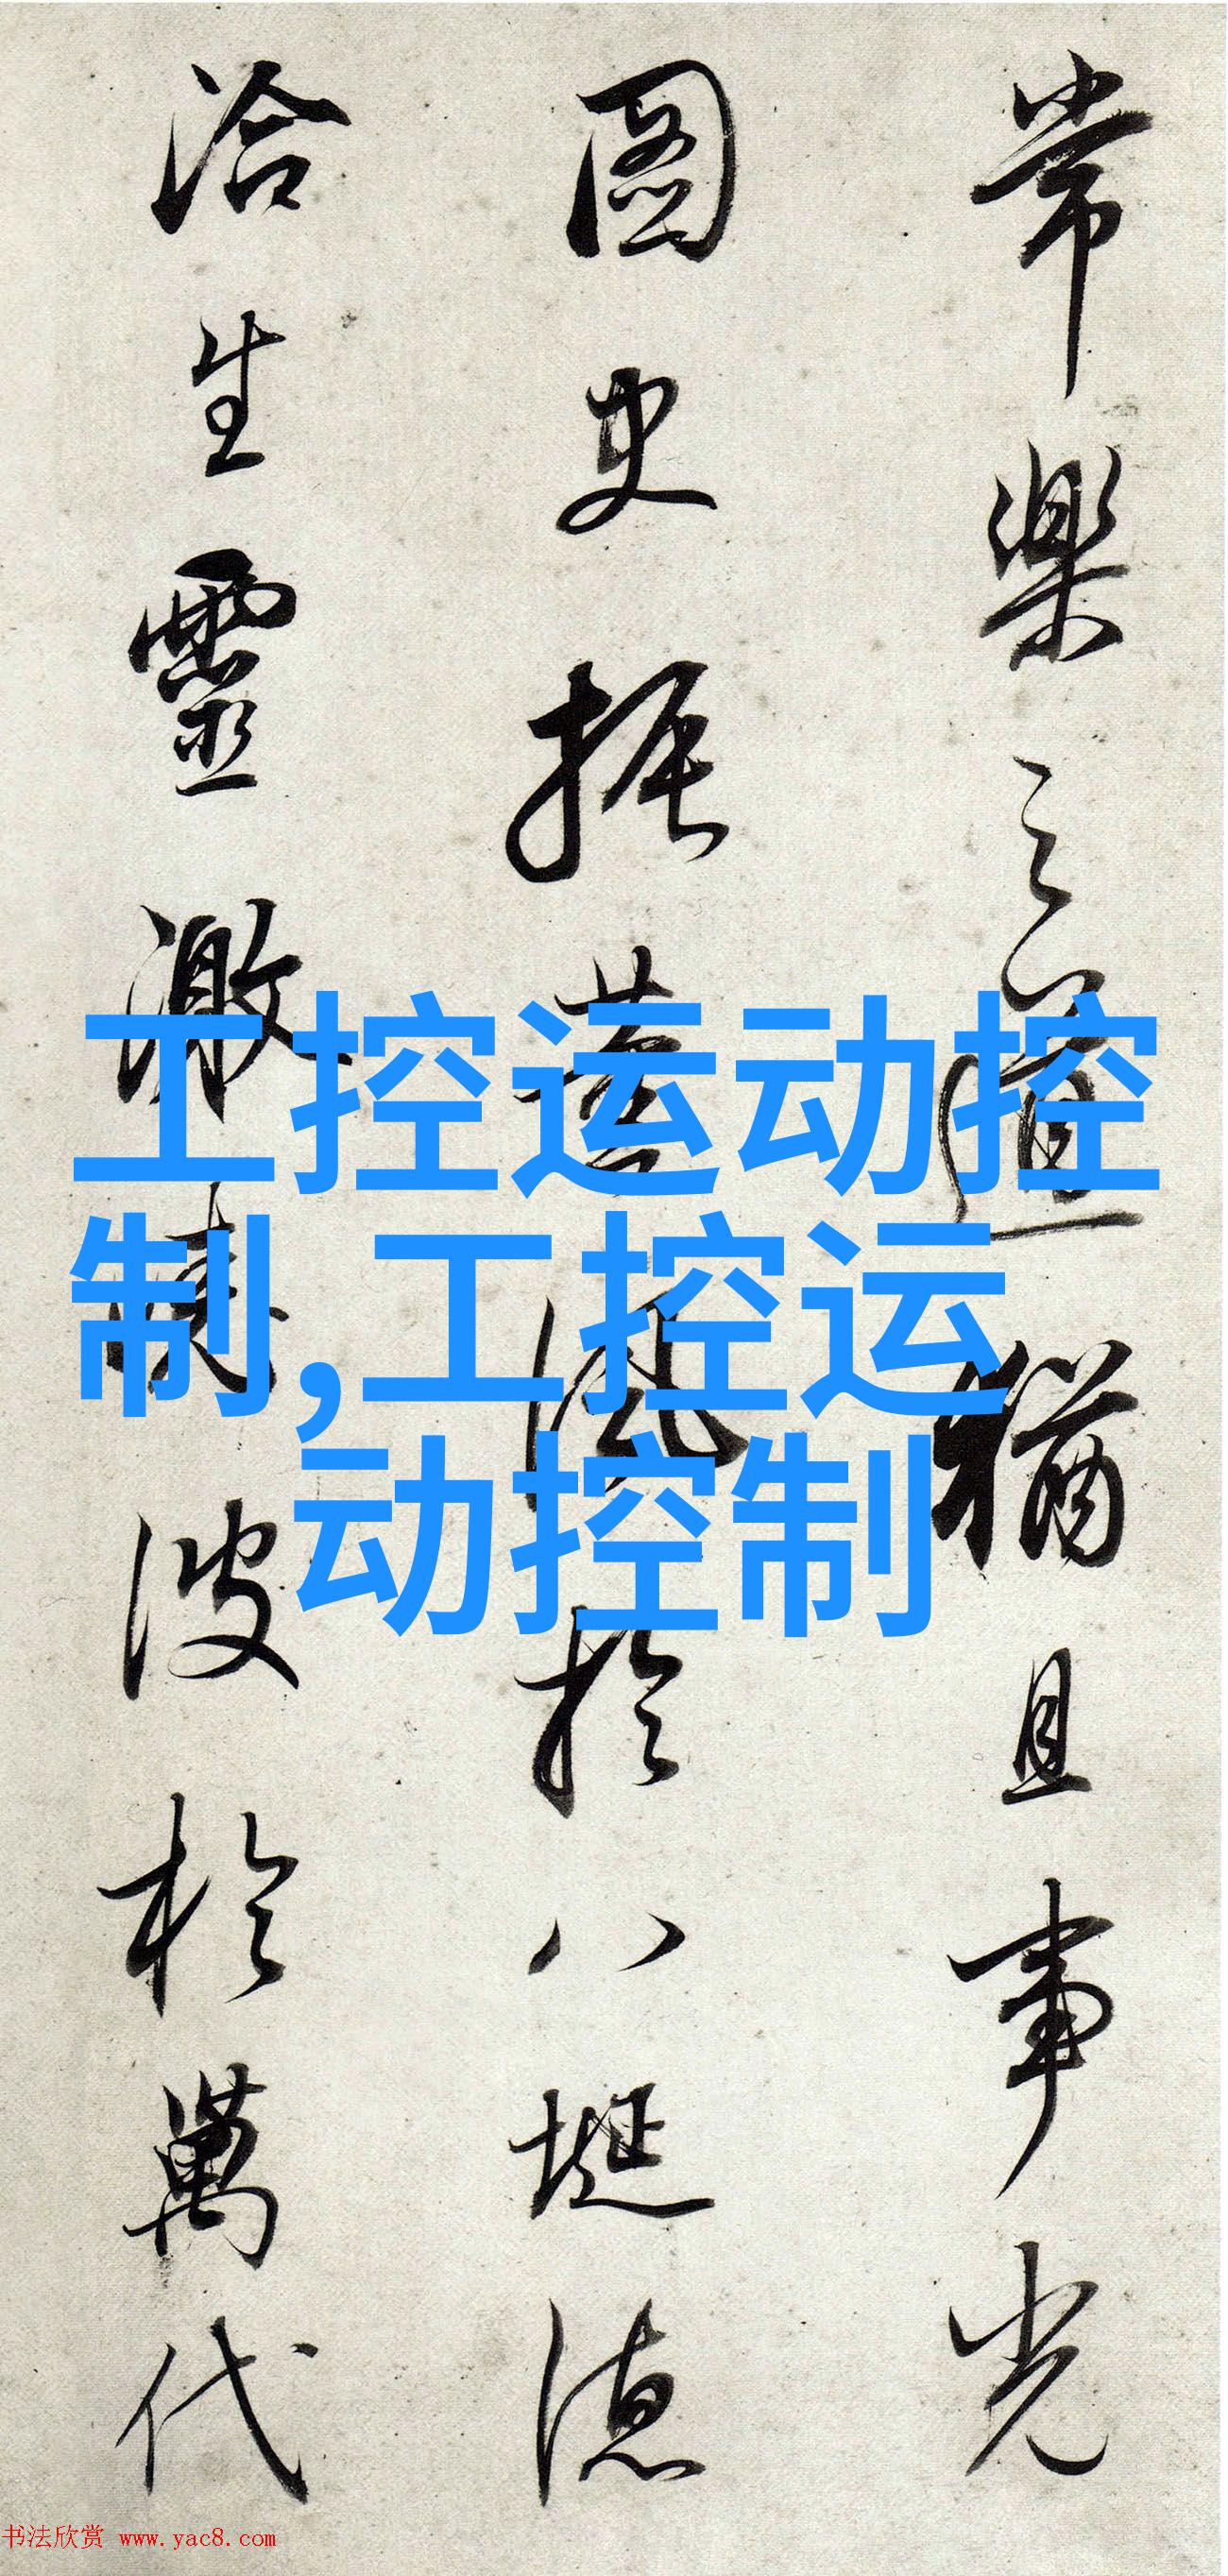 常樂之道猶且事光
圖史振薰風於八埏德
洽生靈激清波於萬代
工控运动控
制,工控运
动控制
书法欣赏 www.yac8.com